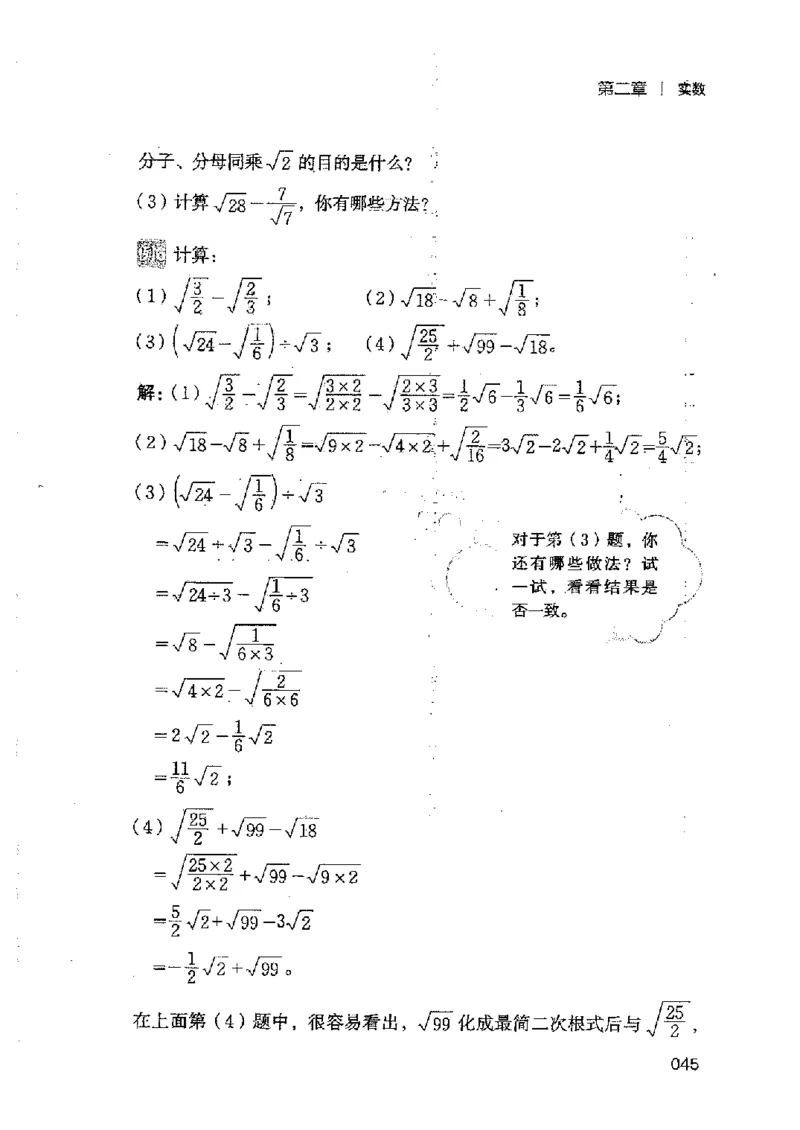 第二章 | 实数
分子、分母同乘√2 的目的是什么?
(3) 计算 √28 - 7/√7, 你有哪些方法?
计算:
(1) √(3/2) - √(2/3); (2) √18 - √8 + √(1/8);
(3) (√24 - √(1/6)) ÷ √3; (4) √(25/2) + √99 - √18。
解: (1) √(3/2) - √(2/3) = √((3×2)/(2×2)) - √((2×3)/(3×3)) = 1/2 √6 - 1/3 √6 = 1/6 √6;
(2) √18 - √8 + √(1/8) = √(9×2) - √(4×2) + √(2/16) = 3√2 - 2√2 + 1/4 √2 = 5/4 √2;
(3) (√24 - √(1/6)) ÷ √3
= √24 ÷ √3 - √(1/6) ÷ √3
= √(24÷3) - √(1/6 ÷ 3)
= √8 - √(1/(6×3))
= √(4×2) - √(2/(6×6))
= 2√2 - 1/6 √2
= 11/6 √2;
对于第 (3) 题, 你
还有哪些做法? 试
一试, 看看结果是
否一致。
(4) √(25/2) + √99 - √18
= √((25×2)/(2×2)) + √99 - √(9×2)
= 5/2 √2 + √99 - 3√2
= -1/2 √2 + √99。
在上面第 (4) 题中, 很容易看出, √99 化成最简二次根式后与 √(25/2),
045